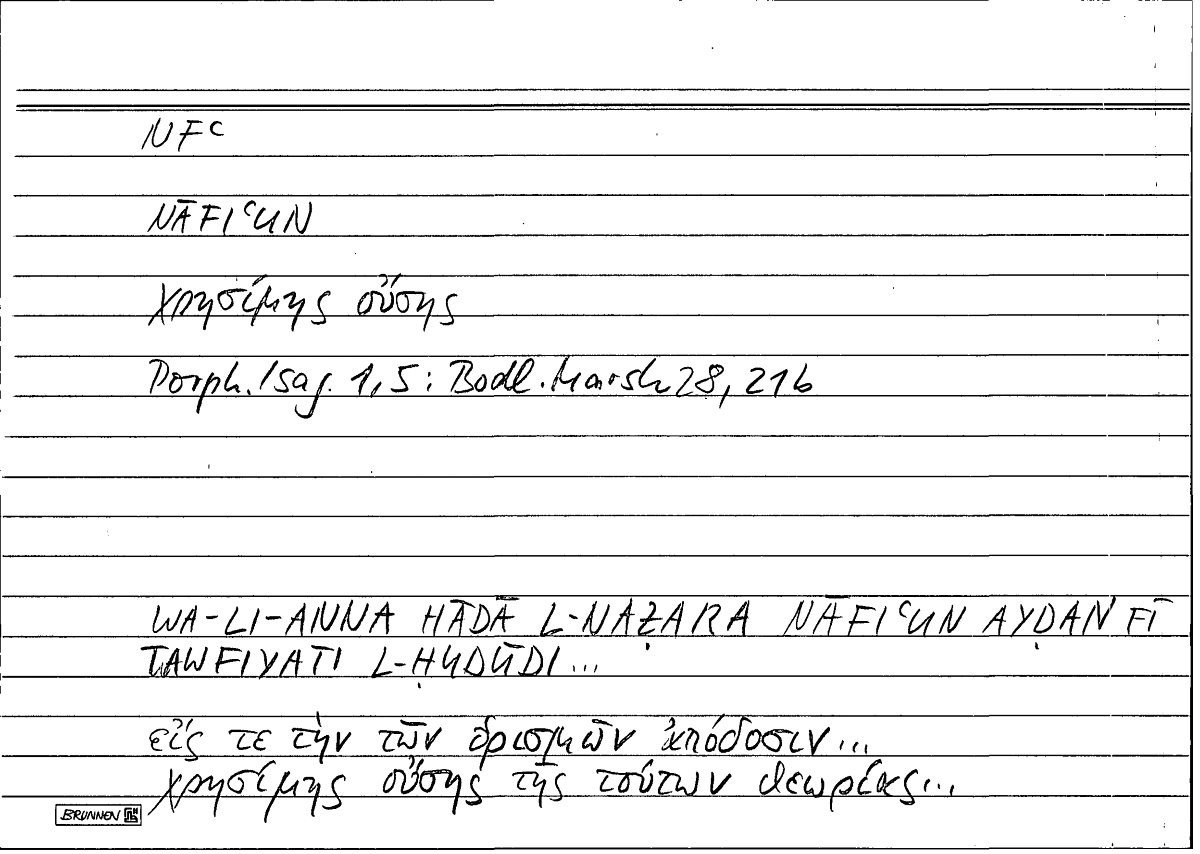 NFʿ
NĀFIʿUN
χρησίμης οὔσης
Porph. Isag. 1,5: Bodl. Marsh 28, 21b
WA-LI-ANNA HĀDĀ L-NAẒARA NĀFIʿUN AYḌAN FĪ
TAWFIYATI L-ḤUDŪDI...
εἴς τε τὴν τῶν ὁρισμῶν ἀπόδοσιν...
χρησίμης οὔσης τῆς τούτων θεωρίας...
BRUNNEN